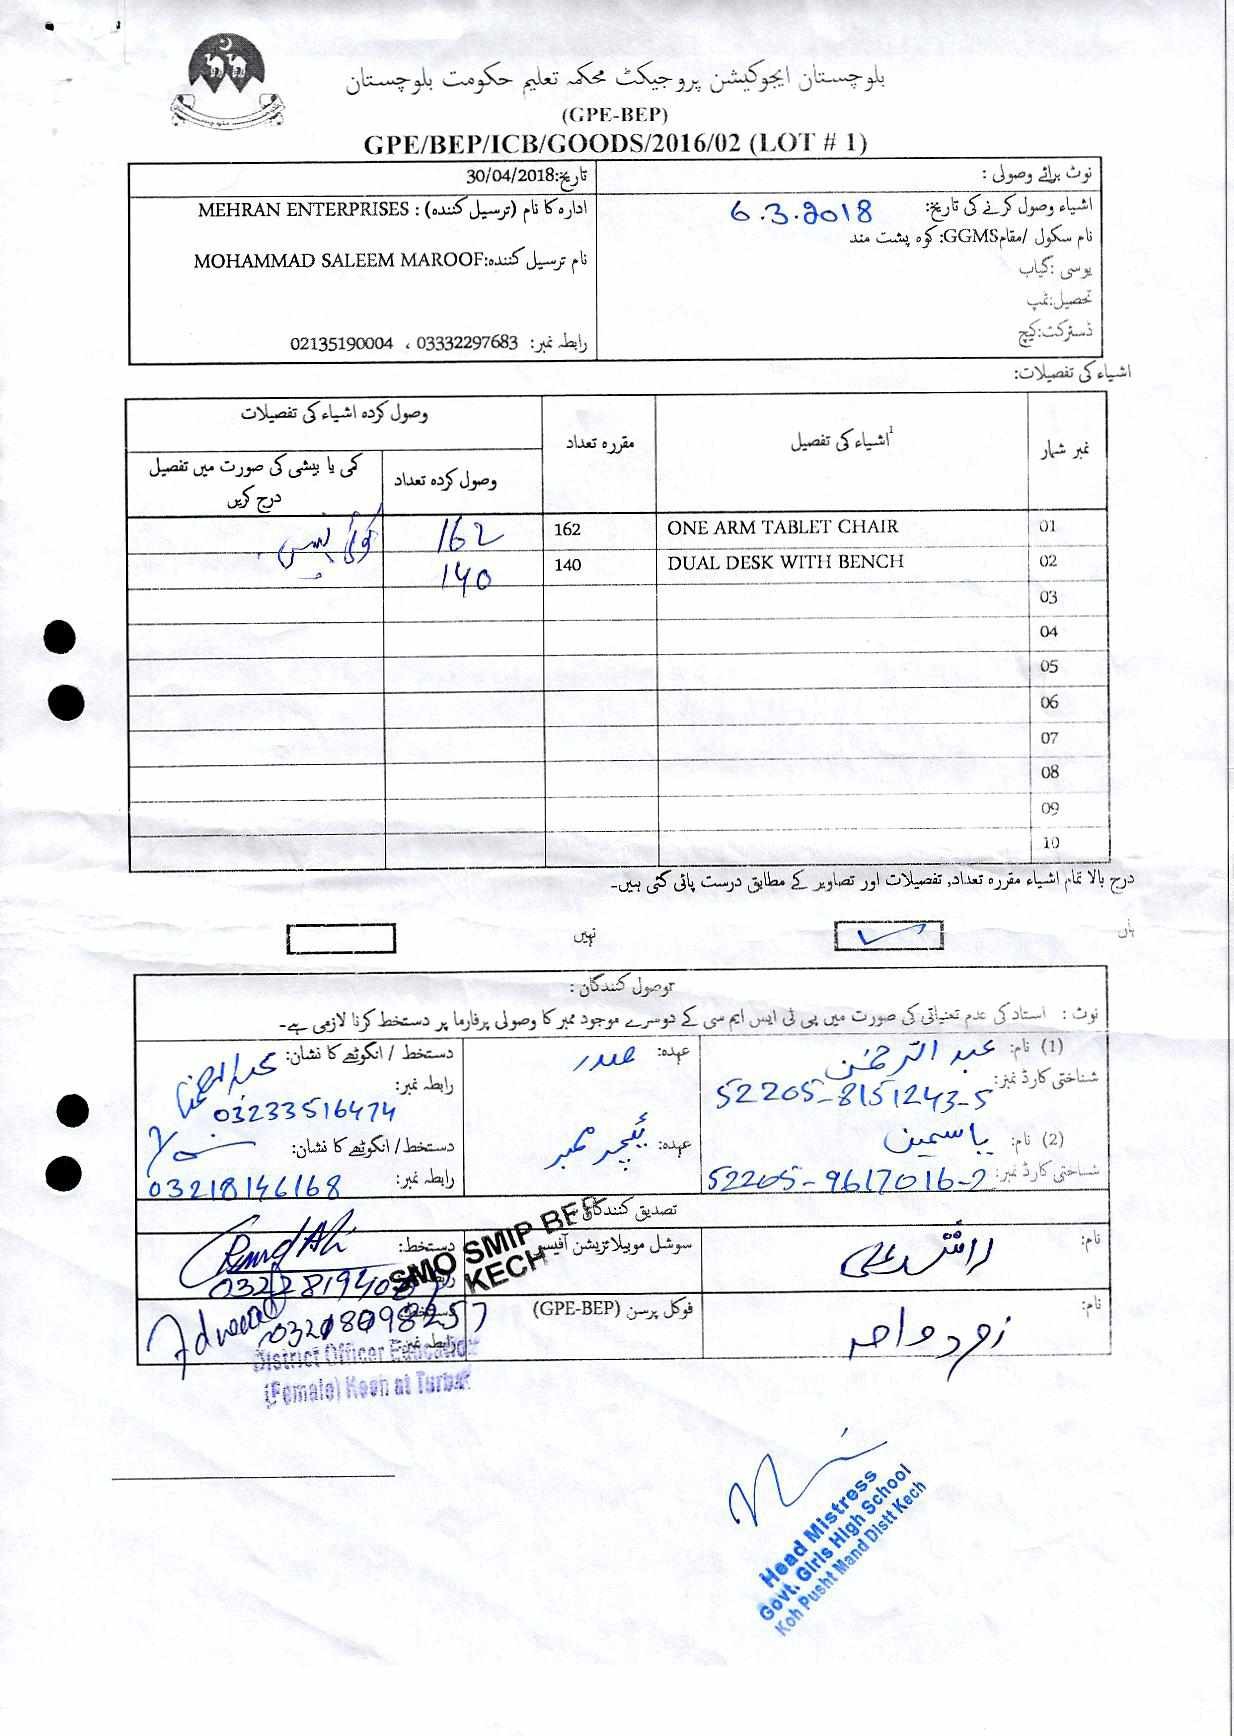 بلوچستان ایجوکیشن پروجیکٹ محکمہ تعلیم حکومت بلوچستان
(GPE-BEP)
GPE/BEP/ICB/GOODS/2016/02 (LOT # 1)
نوٹ برائے وصولی :
اشیاء وصول کرنے کی تاریخ: 6.3.2018
نام سکول /مقام GGMS: کوہ پشت مند
یوسی :گیاب
تحصیل:تمپ
ڈسٹرکٹ:کیچ
تاریخ:30/04/2018
ادارہ کا نام (ترسیل کنندہ) : MEHRAN ENTERPRISES
نام ترسیل کنندہ:MOHAMMAD SALEEM MAROOF
رابطہ نمبر: 03332297683 ، 02135190004
اشیاء کی تفصیلات:
نمبر شمار
1اشیاء کی تفصیل
مقررہ تعداد
وصول کردہ اشیاء کی تفصیلات
وصول کردہ تعداد
کمی یا بیشی کی صورت میں تفصیل
درج کریں
01 ONE ARM TABLET CHAIR 162 162 کوئی نہیں
02 DUAL DESK WITH BENCH 140 140
03
04
05
06
07
08
09
10
درج بالا تمام اشیاء مقررہ تعداد, تفصیلات اور تصاویر کے مطابق درست پائی گئی ہیں۔
ہاں
نہیں
2وصول کنندگان :
نوٹ : استاد کی عدم تعیناتی کی صورت میں پی ٹی ایس ایم سی کے دوسرے موجود ممبر کا وصولی پرفارما پر دستخط کرنا لازمی ہے۔
(1) نام: عبد الرحمٰن
شناختی کارڈ نمبر: 52205-8151243-5
عہدہ: صدر
دستخط / انگوٹھے کا نشان:
رابطہ نمبر:
03233516474
(2) نام: یاسمین
شناختی کارڈ نمبر: 52205-9617016-2
عہدہ: ٹیچر ممبر
دستخط / انگوٹھے کا نشان:
رابطہ نمبر: 03218146168
تصدیق کنندگان
نام: راشد علی
سوشل موبیلائزیشن آفیسر
دستخط:
SMO SMIP BEP
KECH
نام:
فوکل پرسن (GPE-BEP)
District Officer Education
(Female) Kech at Turbat
Head Mistress
Govt. Girls High School
Koh Pusht Mand Distt Kech